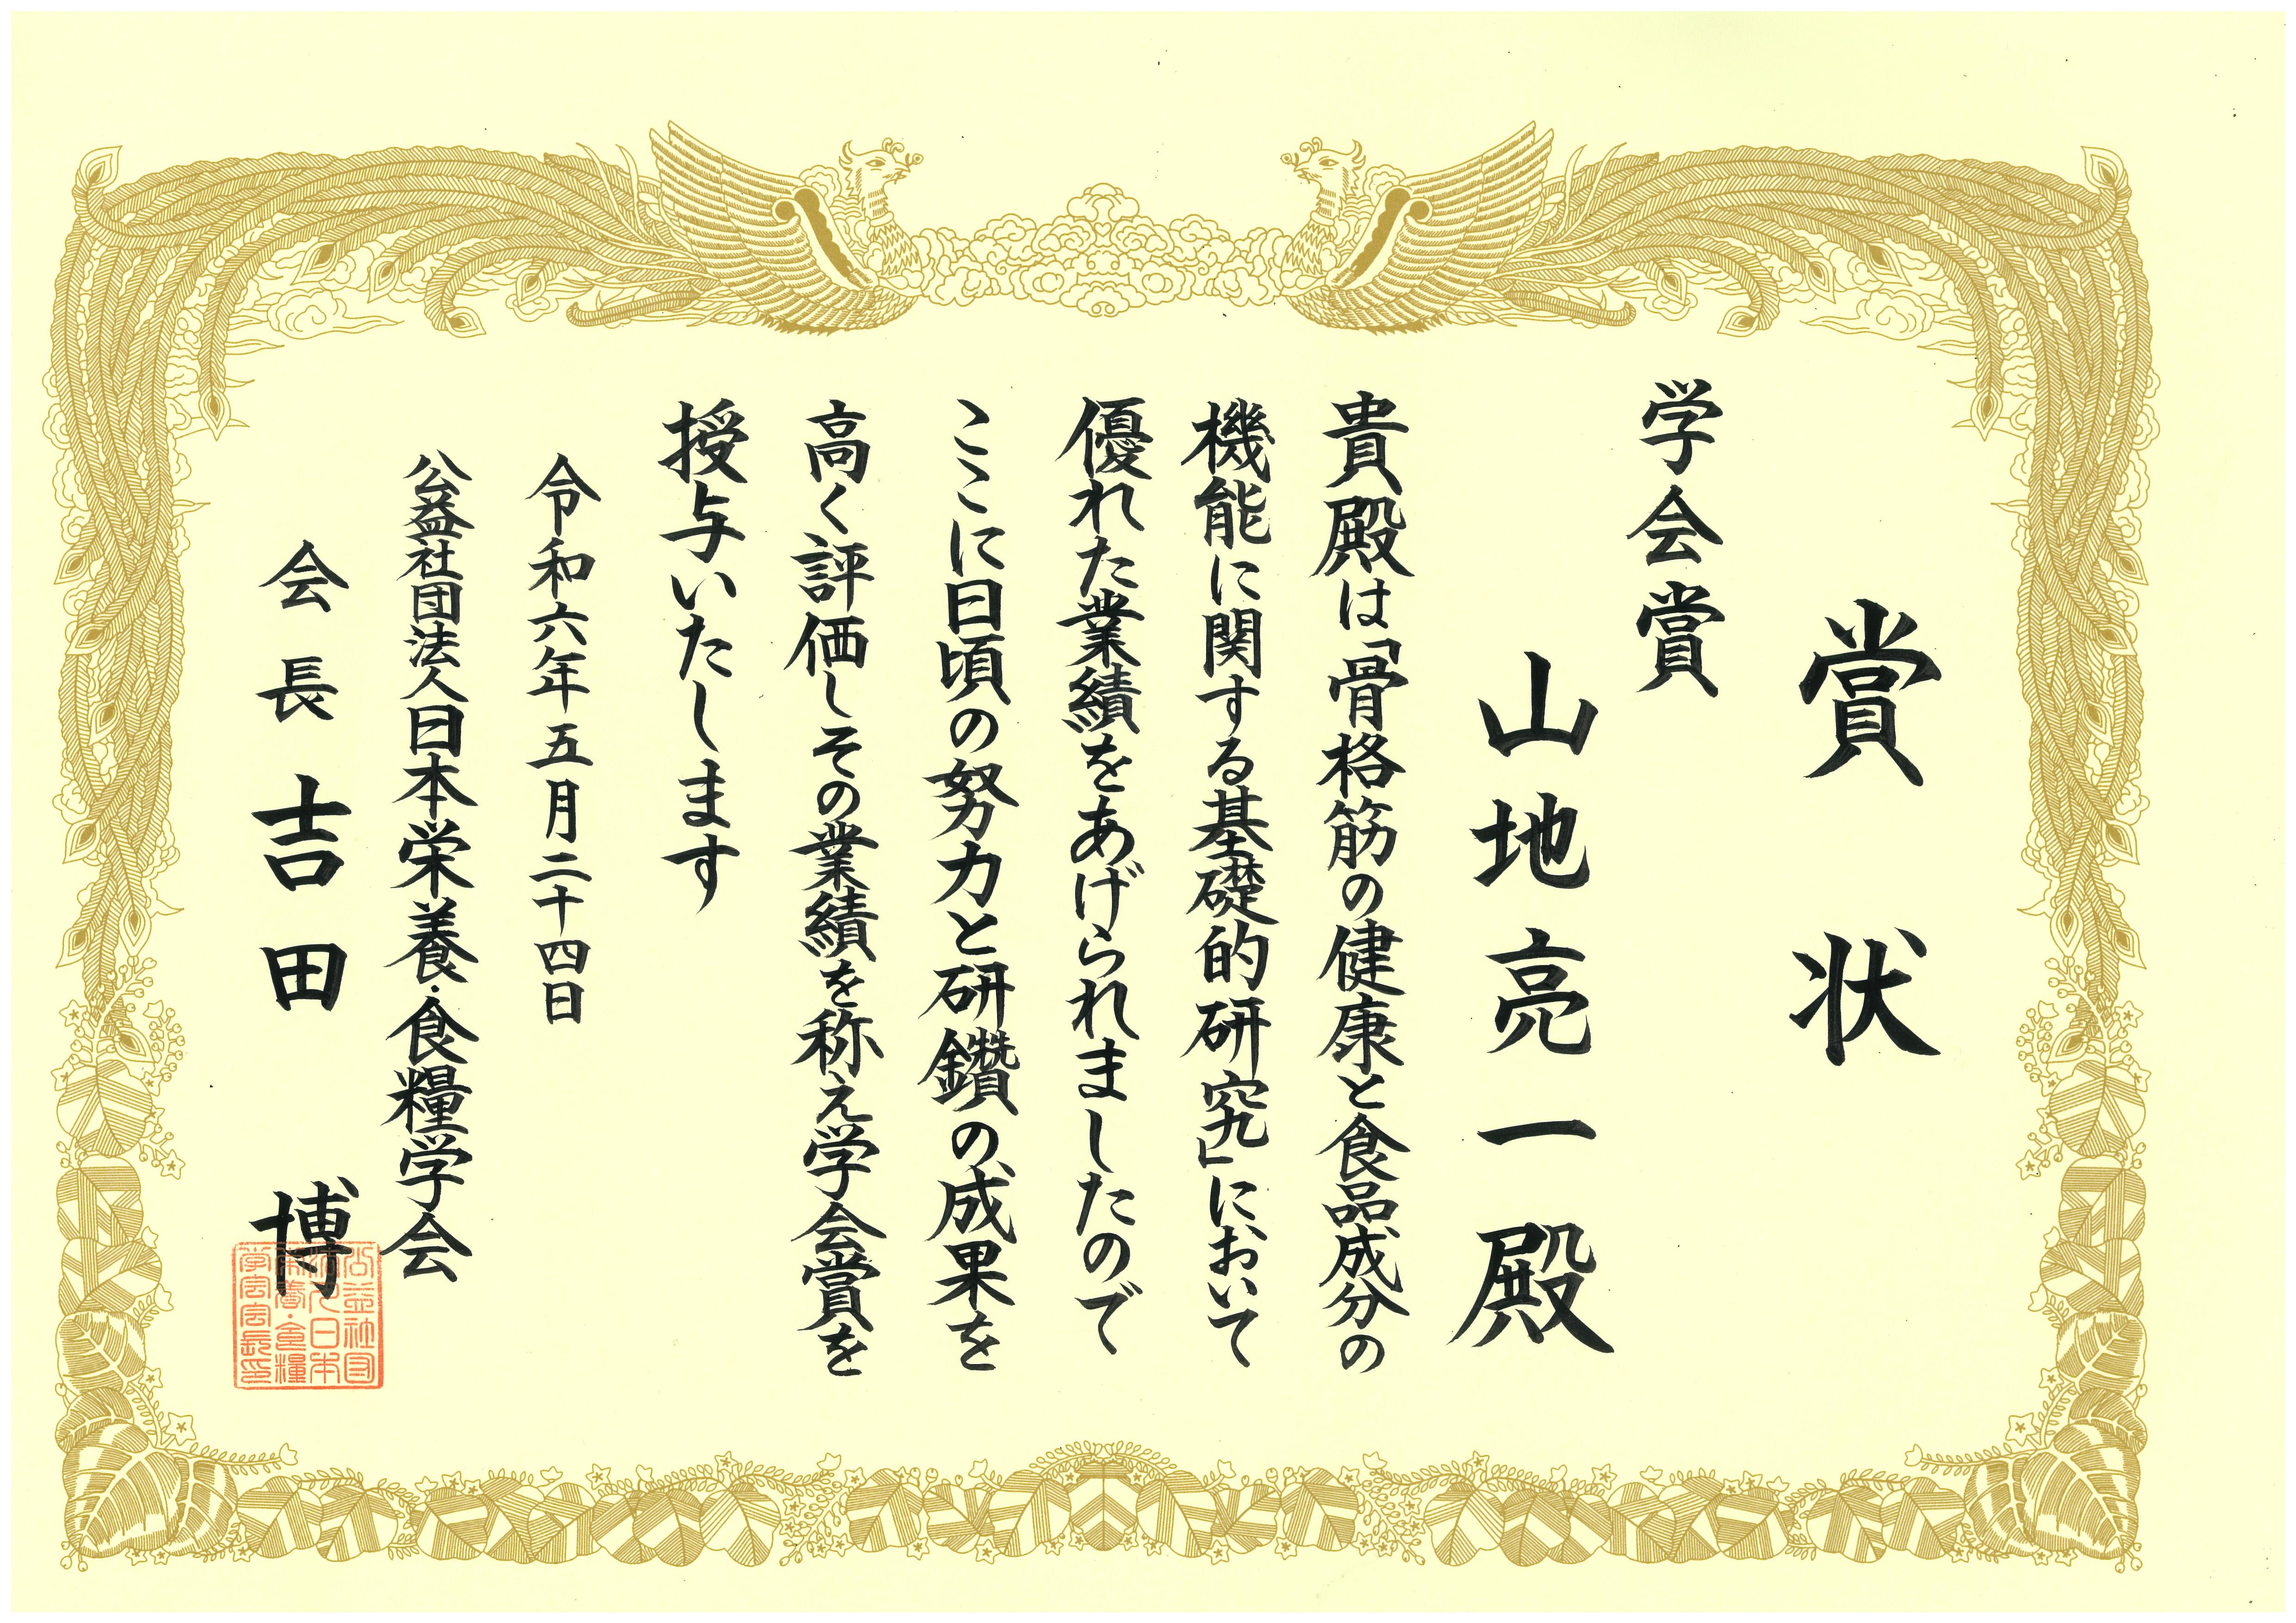 賞状
学会賞
山地亮一殿
貴殿は「骨格筋の健康と食品成分の
機能に関する基礎的研究」において
優れた業績をあげられましたので
ここに日頃の努力と研鑽の成果を
高く評価しその業績を称え学会賞を
授与いたします
令和六年五月二十四日
公益社団法人日本栄養・食糧学会
会長 吉田 博
公益社団
法人日本
栄養・食糧
学会会長印